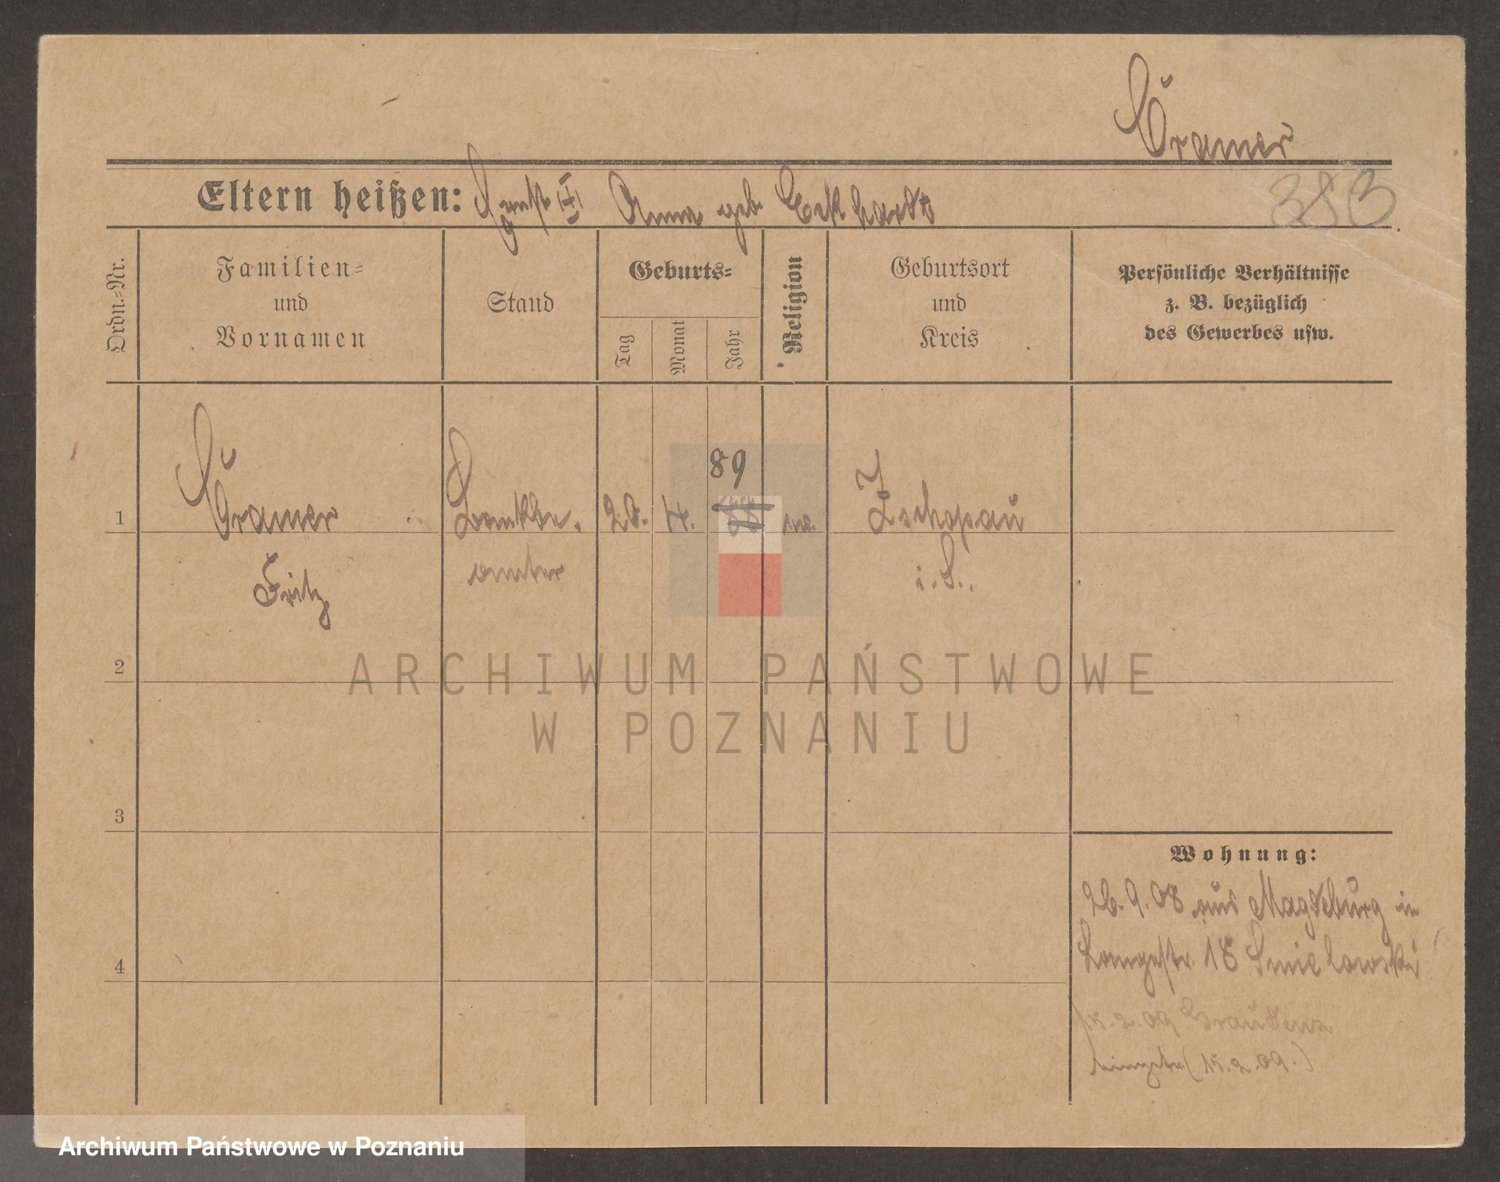 Cramer
383
Eltern heißen: August (†) Anna geb. Eckhardt
Ordn.-Nr.
Familien-
und
Vornamen
Stand
Geburts-
Tag
Monat
Jahr
Religion
Geburtsort
und
Kreis
Persönliche Verhältnisse
z. B. bezüglich
des Gewerbes usw.
89
1 Cramer Bankbe- 28. 4. 88 ev. Zschopau
Fritz amter i. S.
2
3
4
Wohnung:
26.9.08 aus Magdeburg in
Langestr. 18 Smielowski
15.2.09 Graudenz
(15.2.09.)
ARCHIWUM PAŃSTWOWE
W POZNANIU
Archiwum Państwowe w Poznaniu